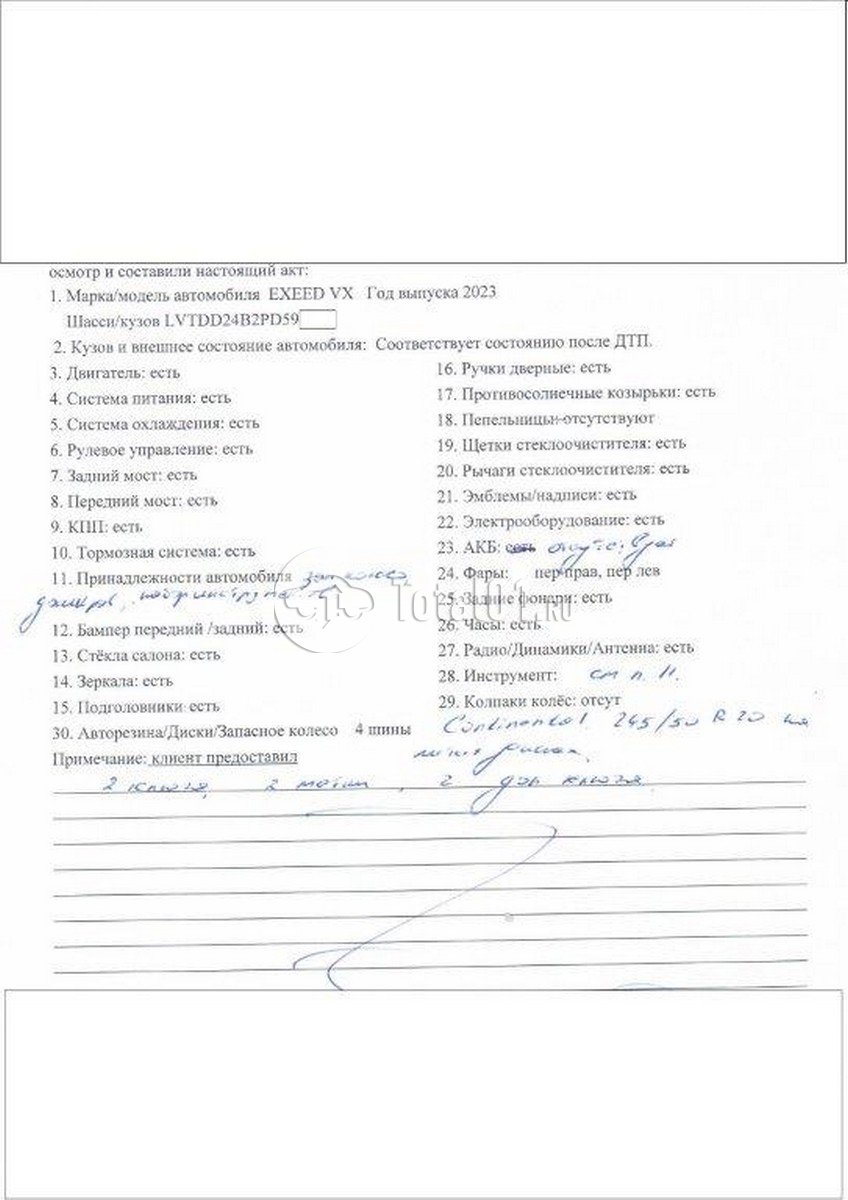 осмотр и составили настоящий акт:
1. Марка/модель автомобиля EXEED VX Год выпуска 2023
Шасси/кузов LVTDD24B2PD59
2. Кузов и внешнее состояние автомобиля: Соответствует состоянию после ДТП.
3. Двигатель: есть
4. Система питания: есть
5. Система охлаждения: есть
6. Рулевое управление: есть
7. Задний мост: есть
8. Передний мост: есть
9. КПП: есть
10. Тормозная система: есть
11. Принадлежности автомобиля
12. Бампер передний /задний: есть
13. Стёкла салона: есть
14. Зеркала: есть
15. Подголовники есть
16. Ручки дверные: есть
17. Противосолнечные козырьки: есть
18. Пепельницы: отсутствуют
19. Щетки стеклоочистителя: есть
20. Рычаги стеклоочистителя: есть
21. Эмблемы/надписи: есть
22. Электрооборудование: есть
23. АКБ: есть
24. Фары: пер прав, пер лев
25. Задние фонари: есть
26. Часы: есть
27. Радио/Динамики/Антенна: есть
28. Инструмент: см п. 11.
29. Колпаки колёс: отсут
30. Авторезина/Диски/Запасное колесо 4 шины Continental 245/50 R 20 на
Примечание: клиент предоставил
2 ключа, 2 , 2 ключа
Total01.ru